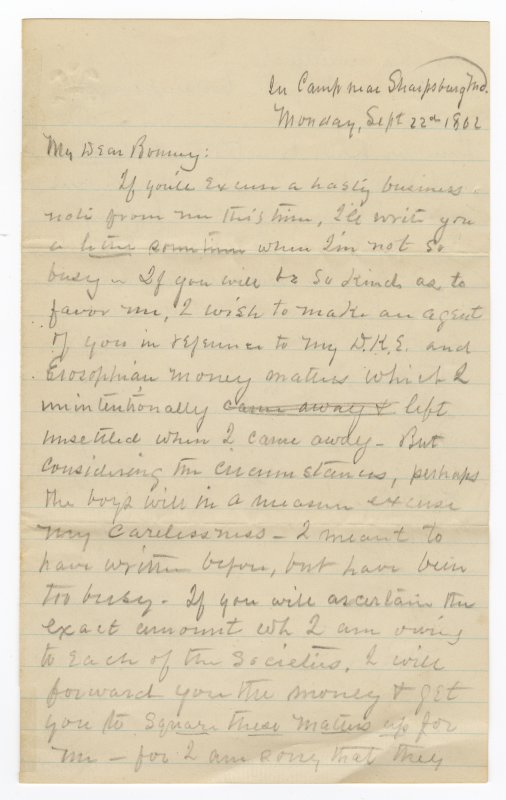 In Camp near Sharpsburg Md.
Monday, Sept 22nd 1862
My Dear Bonney:
If you'll excuse a hasty business
note from me this time, I'll write you
a letter sometime when I'm not so
busy - If you will be so kind as to
favor me, I wish to make an agent
of you in reference to my D.K.E. and
Erosophian money matters which I
unintentionally came away & left
unsettled when I came away - But
considering the circumstances, perhaps
the boys will in a measure excuse
my carelessness - I meant to
have written before, but have been
too busy. If you will ascertain the
exact amount wh I am owing
to each of the Societies, I will
forward you the money & get
you to square these matters up for
me - for I am sorry that they